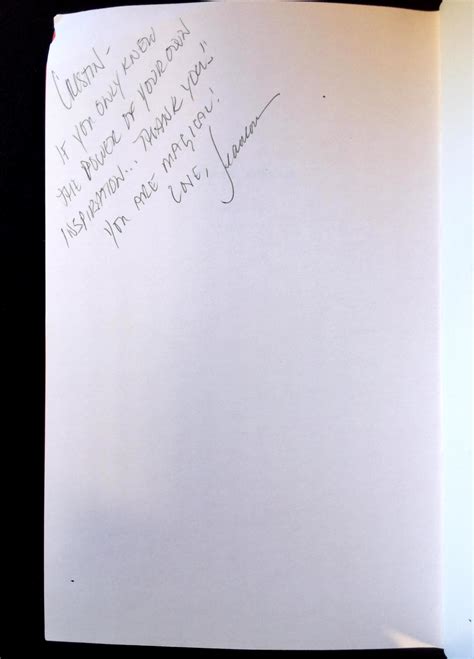 CRISTIN -
IF YOU ONLY KNEW
THE POWER OF YOUR OWN
INSPIRATION... THANK YOU!!
YOU ARE MAGICAL!
LOVE,